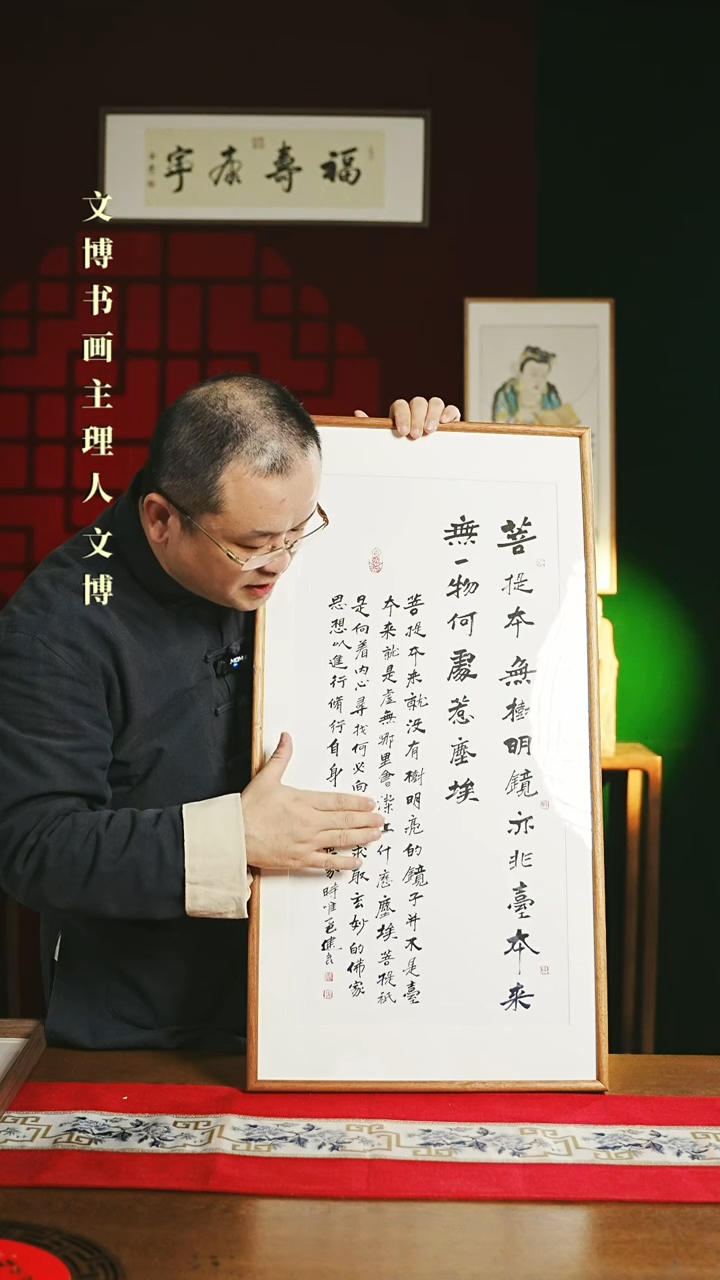 福壽康寧
文博书画主理人文博
菩提本無樹明鏡亦非臺本来
無一物何處惹塵埃
菩提本来就没有樹明亮的鏡子并不是臺
本来就是虚無哪里會染上什麽塵埃菩提祇
是向着内心尋找何必向求取玄妙的佛家
思想以進行脩行自身家時唯